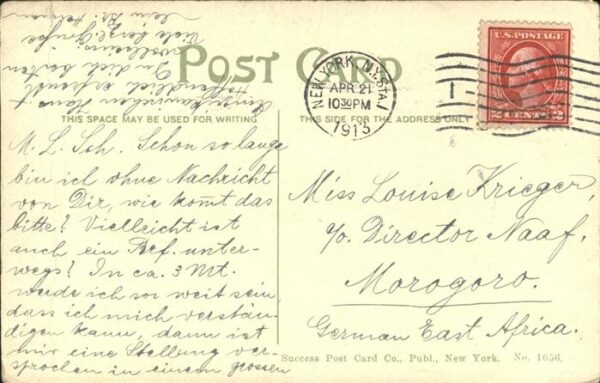 POST CARD
THIS SPACE MAY BE USED FOR WRITING
THIS SIDE FOR THE ADDRESS ONLY
U.S. POSTAGE
2 CENTS 2
NEW YORK, N.Y.
APR 21
10 30 PM
1913
M. L. Sch. Schon so lange
bin ich ohne Nachricht
von Dir, wie kommt das
bitte? Vielleicht ist
auch ein Brf. unter-
wegs? In ca. 3 Mt.
werde ich so weit sein,
dass ich mich verstän-
digen kann, dann ist
mir eine Stellung ver-
sprochen in einem grossen
Hoffentlich erfreut
Viele herzl. Grüsse
Dein Br. Herman
Miss Louise Krieger,
c/o. Director Naaf,
Morogoro.
German East Africa.
Success Post Card Co., Publ., New York. No. 1056.